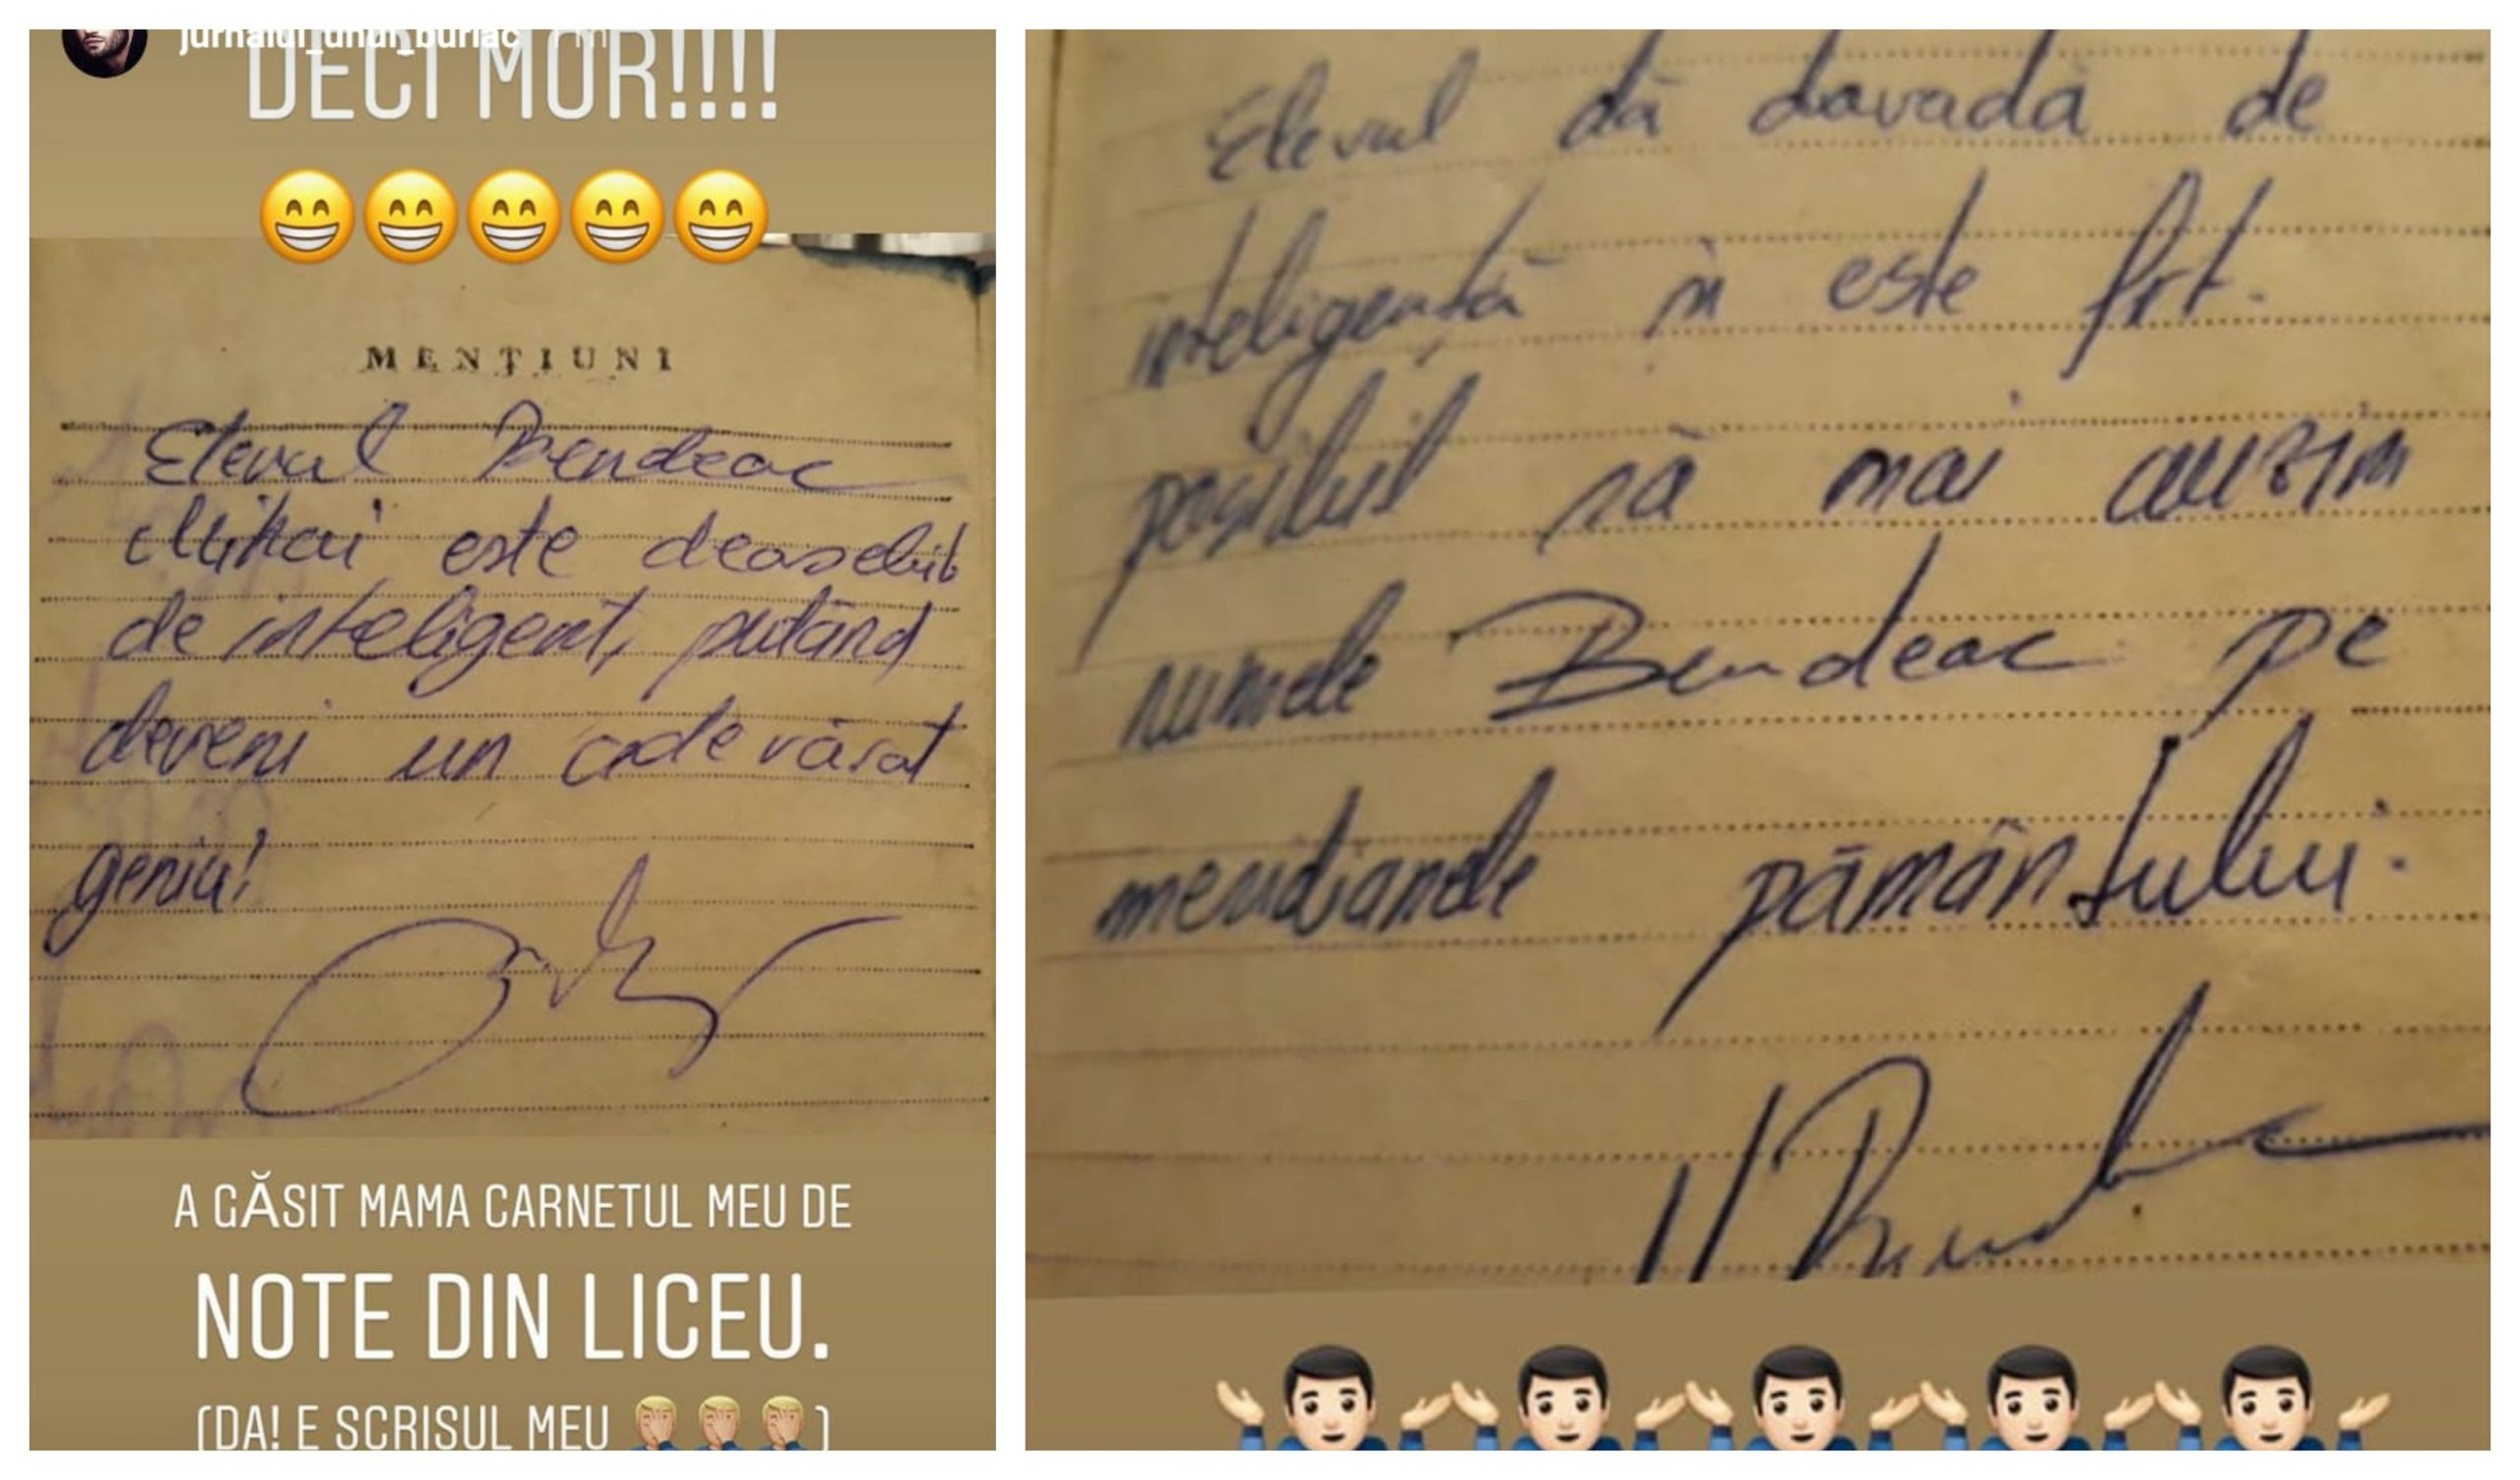 jurnalul_unui_burlac 1 m
DECI MOR!!!!
MENȚIUNI
Elevul Bendeac
Mihai este deosebit
de inteligent, putând
deveni un adevărat
geniu!
A GĂSIT MAMA CARNETUL MEU DE
NOTE DIN LICEU.
(DA! E SCRISUL MEU )
Elevul dă dovadă de
inteligență și este frt.
posibil să mai auzim
numele Bendeac pe
meridianele pământului.